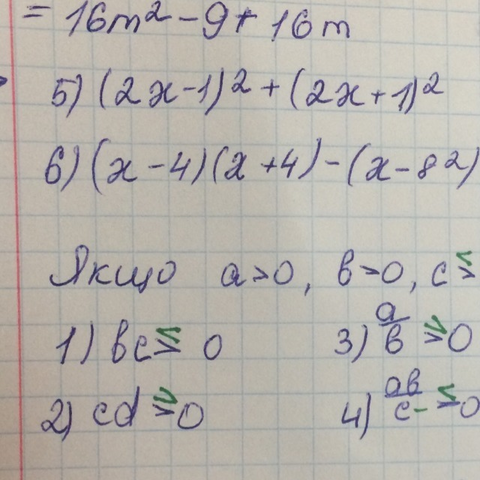 = 16m² - 9 + 16m
5) (2x-1)² + (2x+1)²
6) (x-4)(x+4) - (x-8²)
Якщо a>0, b>0, c
1) bc ≤ 0
3) a/b ≥ 0
2) cd ≥ 0
4) ab/c ≤ 0